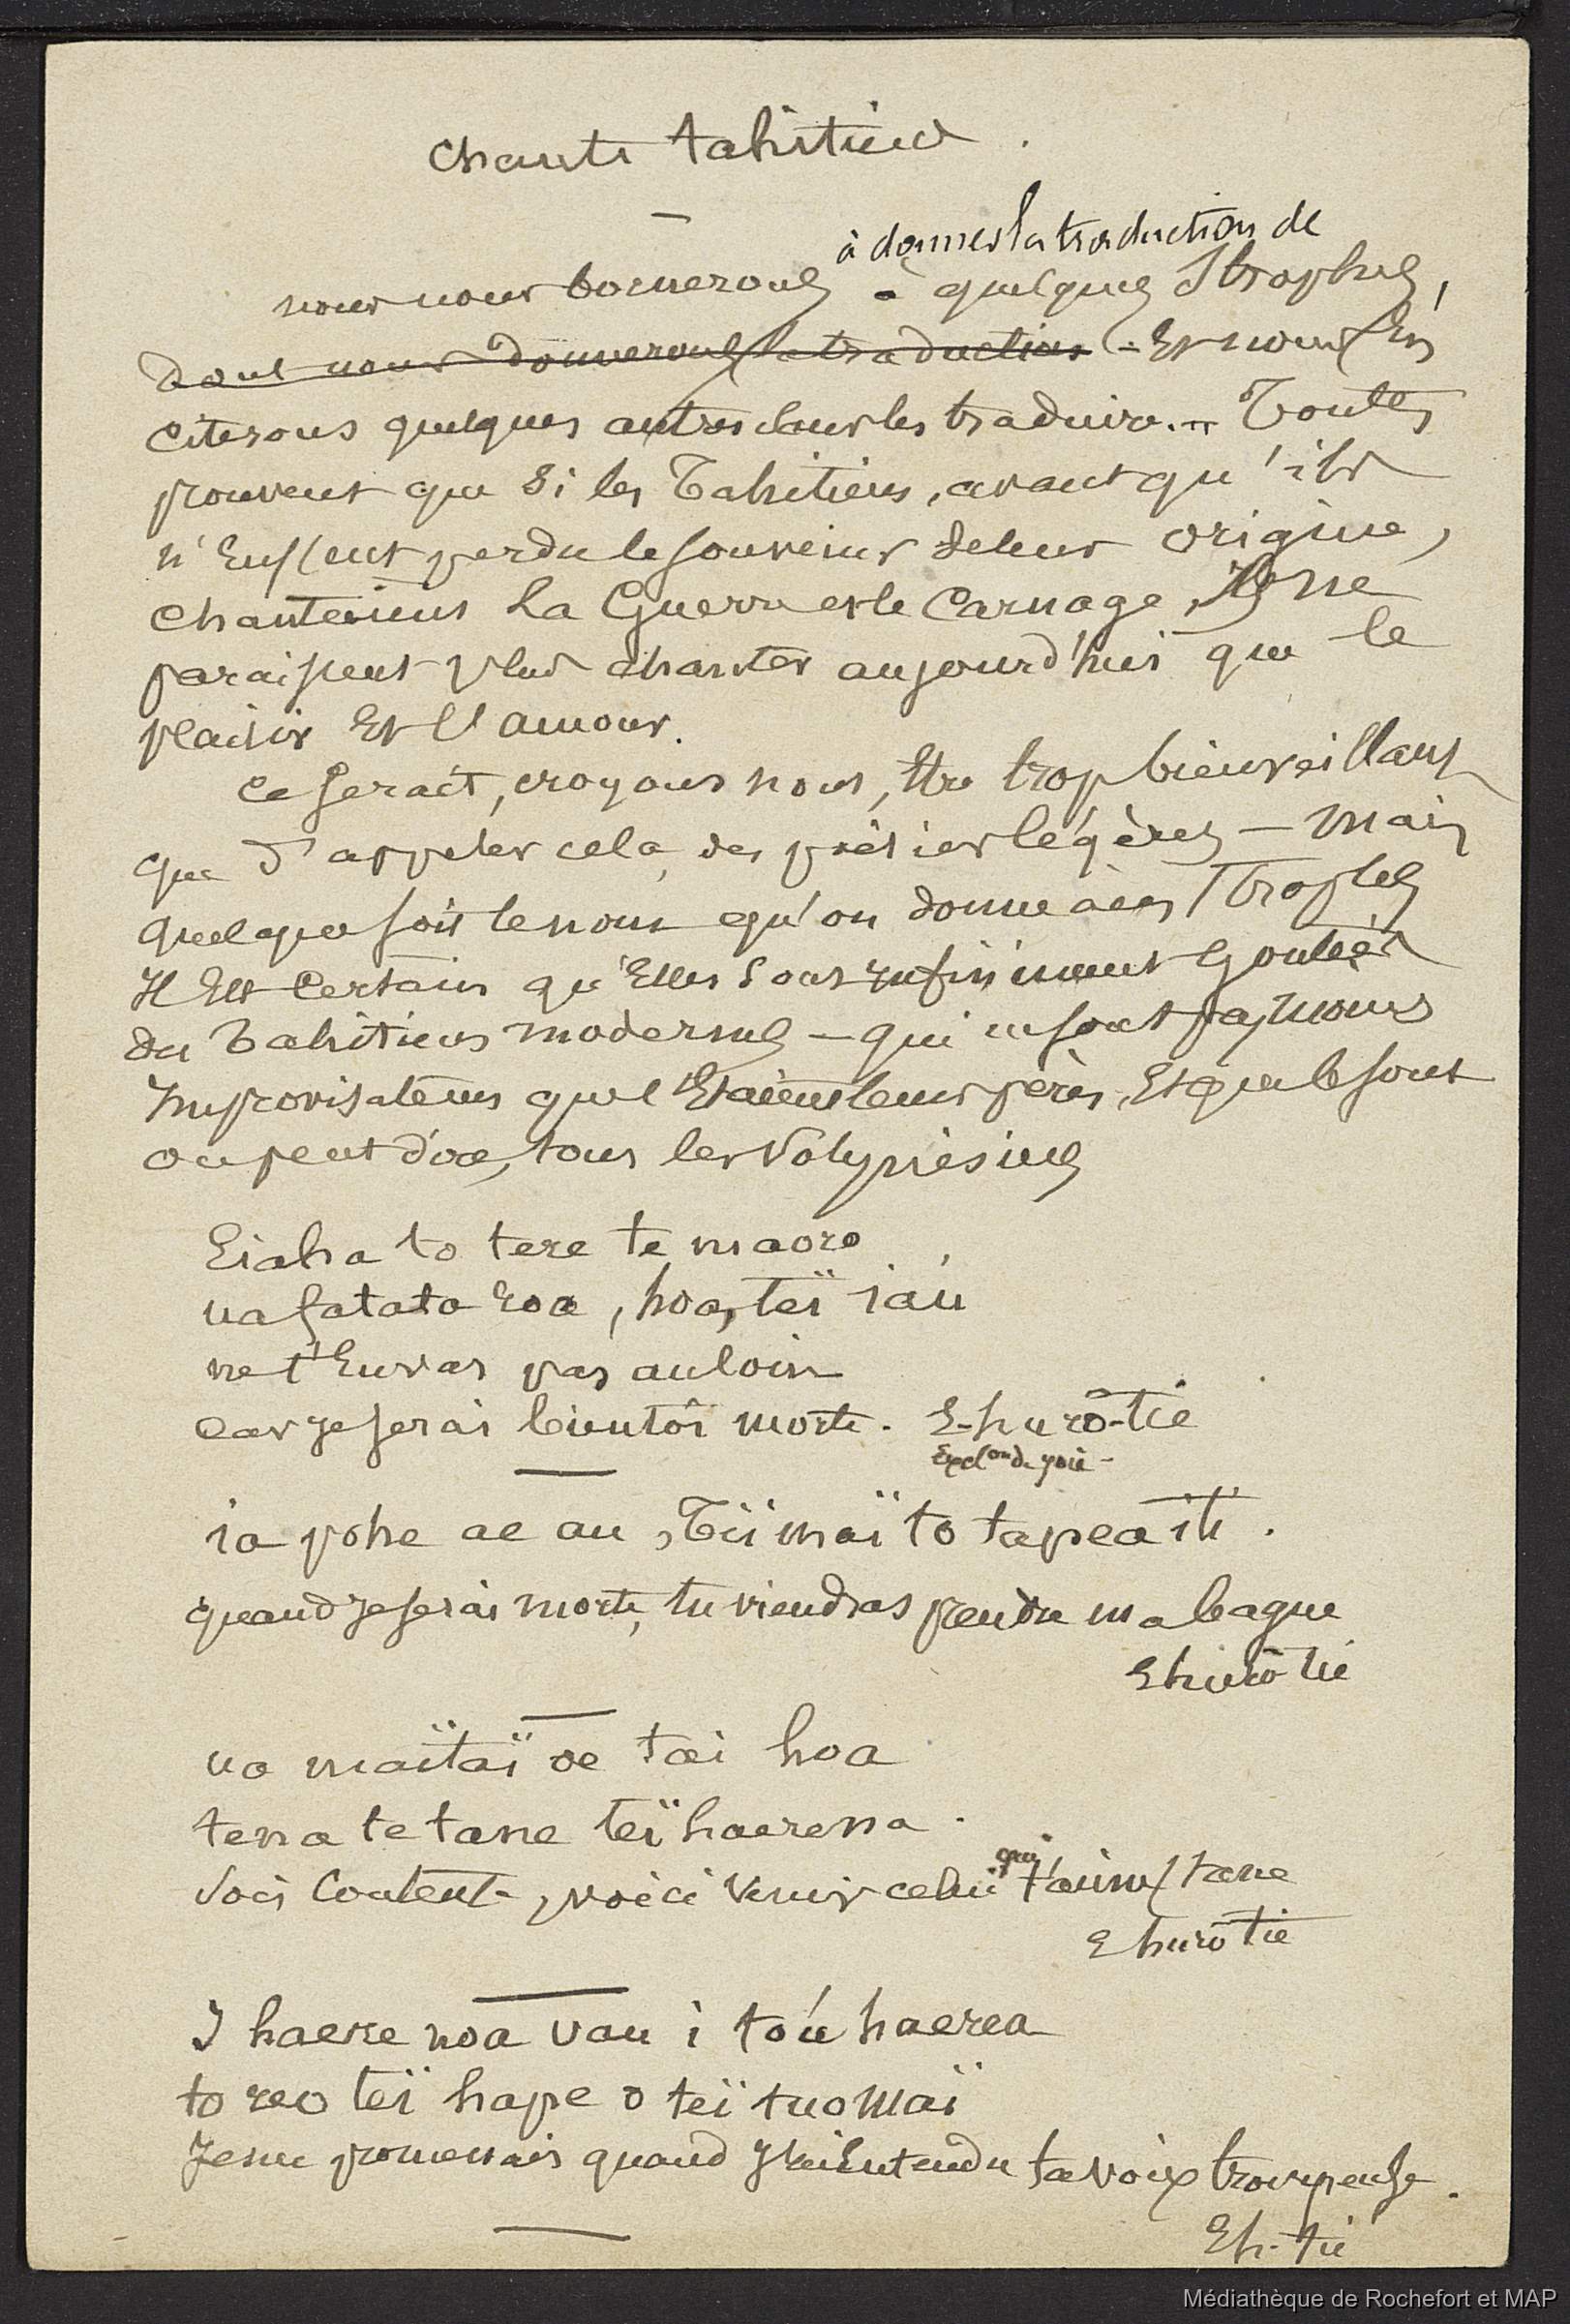 Chants tahitiens.
à donner la traduction de
nous nous bornerons à quelques strophes,
dont nous donnerons la traduction - Et nous En
citerons quelques autres sans les traduire... Toutes
prouvent que si les Tahitiens, avant qu'ils
n'Eussent perdu le souvenir de leur origine,
chantaient la Guerre et le Carnage, Ils ne
paraissent plus chanter aujourd'hui que le
plaisir Et l'amour.
Ce serait, croyons nous, être trop bienveillant
que d'appeler cela des poésies légères - mais
quel que soit le nom qu'on donne à ces strophes
Il Est Certain qu'Elles sont infiniment goûtées
des Tahitiens modernes - qui ne sont pas moins
Improvisateurs que l'Etaient leurs pères, Et que le sont
on peut dire, tous les Polynésiens
Eiaha to tere te maoro
ua fatata roa, hoa, teï iaú
ne t'En vas pas au loin
car je serai bientôt morte. E-hurô-tié
Excl.on de joie -
ia pohe ae au, Tii maï to tapea iti.
quand je serai morte, tu viendras prendre ma bague
Ehurô tié
ua maïtaï oe tai hoa
tena te tane teï haere na.
Sois Contente, voici venir celui qui t'aime / tane
Ehurô tié
I haere noa vau i to'u haerea
to reo teï hape o teï tuo maï
Je me promenais quand j'ai Entendu ta voix trompeuse.
Eh-tié
Médiathèque de Rochefort et MAP